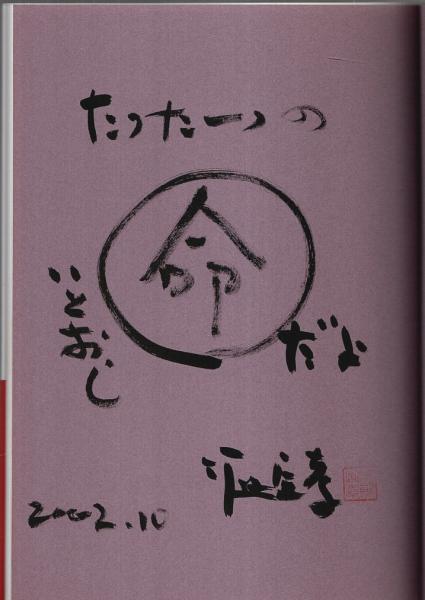 たった一つの
命
だよ
いとおし
2002.10